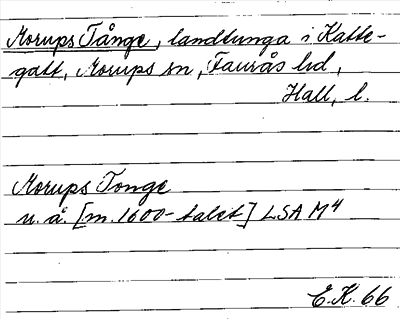 Morups Tånge, landtunga i Katte-
gatt, Morups sn, Faurås hd,
Hall, l.
Morups Tonge
u. å. [m. 1600-talet] LSA M4
E.K. 66